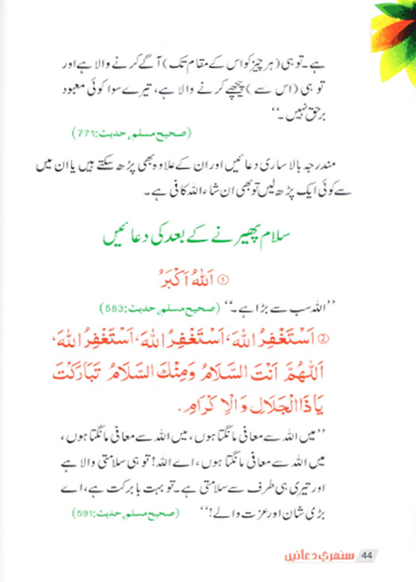 ہے۔ تو ہی (ہر چیز کو اس کے مقام تک) آگے کرنے والا ہے اور
تو ہی (اس سے) پیچھے کرنے والا ہے، تیرے سوا کوئی معبود
برحق نہیں۔‘‘
(صحیح مسلم، حدیث:771)
مندرجہ بالا ساری دعائیں اور ان کے علاوہ بھی پڑھ سکتے ہیں یا ان میں
سے کوئی ایک پڑھ لیں تو بھی ان شاء اللہ کافی ہے۔
سلام پھیرنے کے بعد کی دعائیں
① اَللّٰهُ اَكْبَرُ
’’اللہ سب سے بڑا ہے۔‘‘ (صحیح مسلم، حدیث:583)
② اَسْتَغْفِرُ اللهَ، اَسْتَغْفِرُ اللهَ، اَسْتَغْفِرُ اللهَ،
اَللّٰهُمَّ اَنْتَ السَّلَامُ وَمِنْكَ السَّلَامُ تَبَارَكْتَ
يَا ذَا الْجَلَالِ وَالْاِكْرَامِ.
’’میں اللہ سے معافی مانگتا ہوں، میں اللہ سے معافی مانگتا ہوں،
میں اللہ سے معافی مانگتا ہوں، اے اللہ! تو ہی سلامتی والا ہے
اور تیری ہی طرف سے سلامتی ہے۔ تو بہت با برکت ہے، اے
بڑی شان اور عزت والے!‘‘ (صحیح مسلم، حدیث:591)
سنہری دعائیں 44